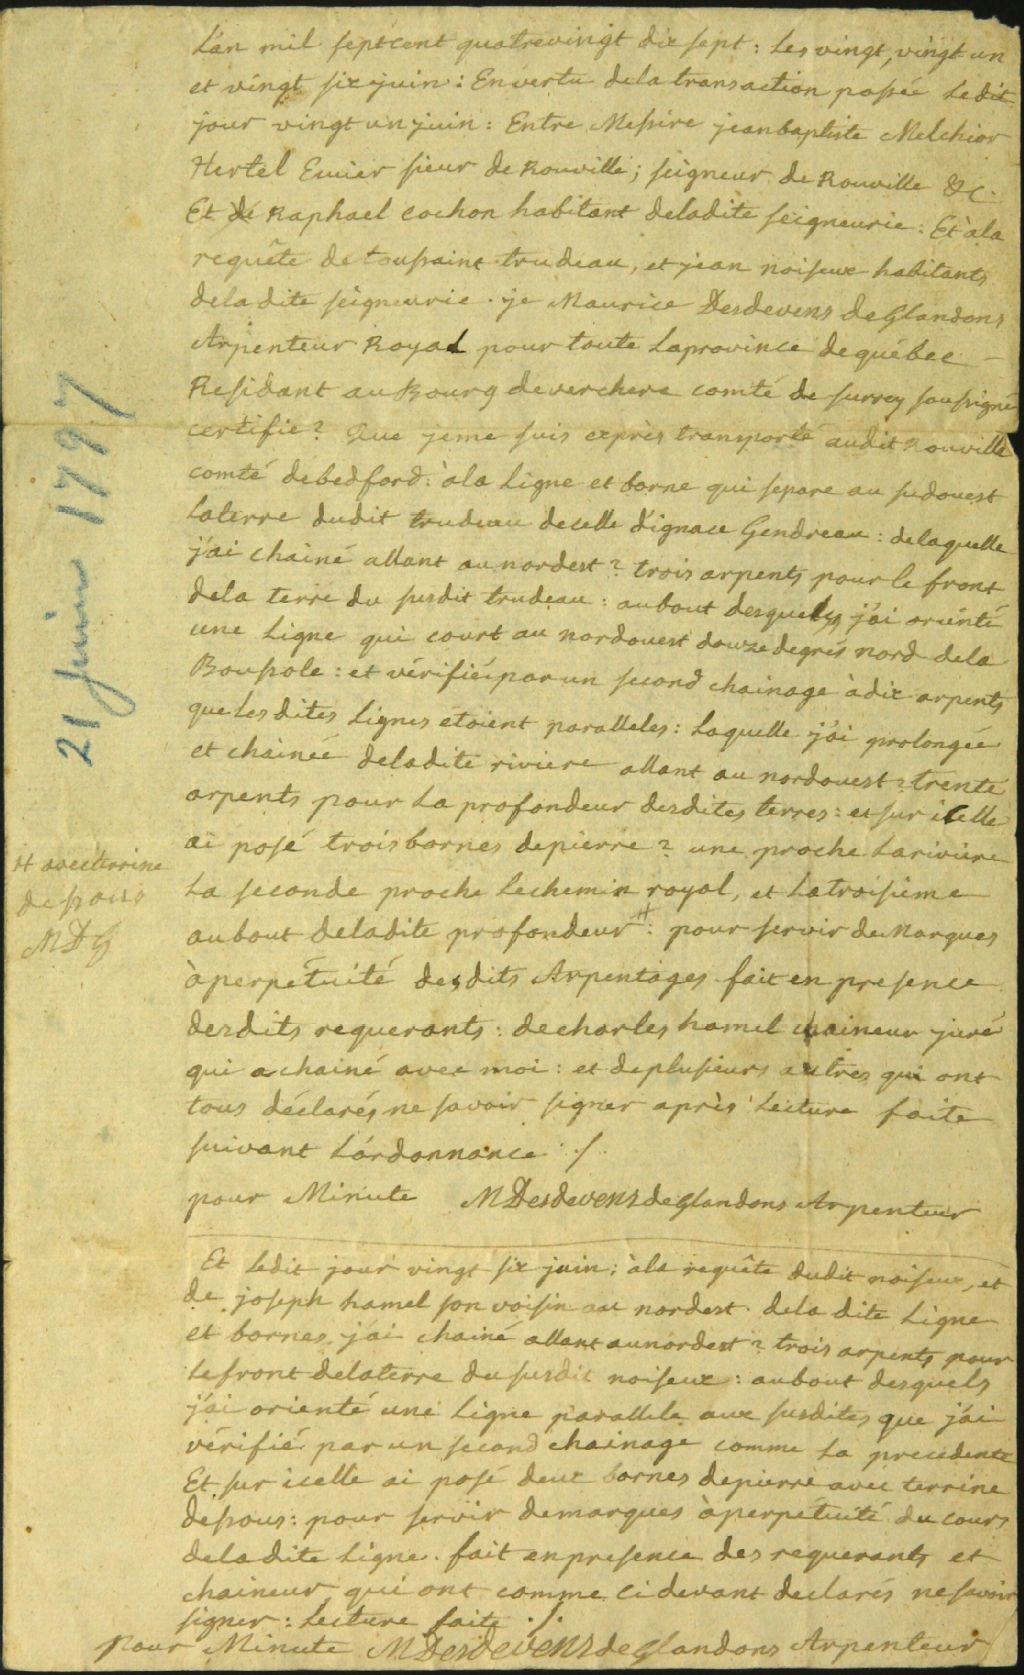 L'an mil septcent quatrevingt dix sept : les vingt, vingt un
et vingt six juin : En vertu dela transaction passée Le dit
jour vingt un juin : Entre Messire jeanbaptiste Melchior
Hertel Ecuier sieur de Rouville ; seigneur de Rouville &c.
Et de Raphael cochon habitant deladite seigneurie : Et à la
requête de toussaint trudeau, et jean noiseux habitants
dela dite seigneurie . je Maurice Desdevens de Glandons
Arpenteur Royal pour toute Laprovince dequébec —
Residant au Bourg deverchere comté de surrey soussigné
certifie ? Que jeme suis exprès transporté audit Rouville
comté debedford : à la Ligne et borne qui separe au sudouest
Laterre dudit trudeau decelle d'ignace Gendreau : delaquelle
j'ai chainé allant au nordest ? trois arpents pour le front
dela terre du susdit trudeau : aubout desquels j'ai orienté
une Ligne qui court au nordouest douze degrés nord dela
Boussole : et vérifié par un second chainage à dix arpents
que Les dites Lignes étoient paralleles : Laquelle j'ai prolongée
et chainée deladite riviere allant au nordouest ? trente
arpents pour La profondeur desdites terres : et sur icelle
ai posé trois bornes depierre ? une proche Lariviere
La seconde proche Lechemin royal, et Latroisieme
aubout deladite profondeur # : pour servir de Marques
# avec terrine
dessous
M D G
à perpétuité desdits Arpentages fait en presence
desdits requerants : de charles hamel chaineur juré
qui a chainé avec moi : et deplusieurs autres qui ont
tous déclarés ne savoir signer après Lecture faite
suivant L'ordonnance ./.
pour Minute M Desdevens de Glandons Arpenteur
Et Ledit jour vingt six juin : à la requête dudit noiseux, et
de joseph hamel son voisin au nordest . dela dite Ligne
et bornes, j'ai chainé allant aunordest ? trois arpents pour
Lefront delaterre du susdit noiseux : aubout desquels
j'ai orienté une Ligne parallele aux susdites que j'ai
vérifié par un second chainage comme La precedente
Et sur icelle ai posé deux bornes depierre avec terrine
dessous : pour servir demarques à perpétuité du cours
deladite Ligne . fait en presence des requerants et
chaineur qui ont comme ci devant declarés ne savoir
signer : Lecture faite ./.
Pour Minute M Desdevens de Glandons Arpenteur
21 Juin 1797